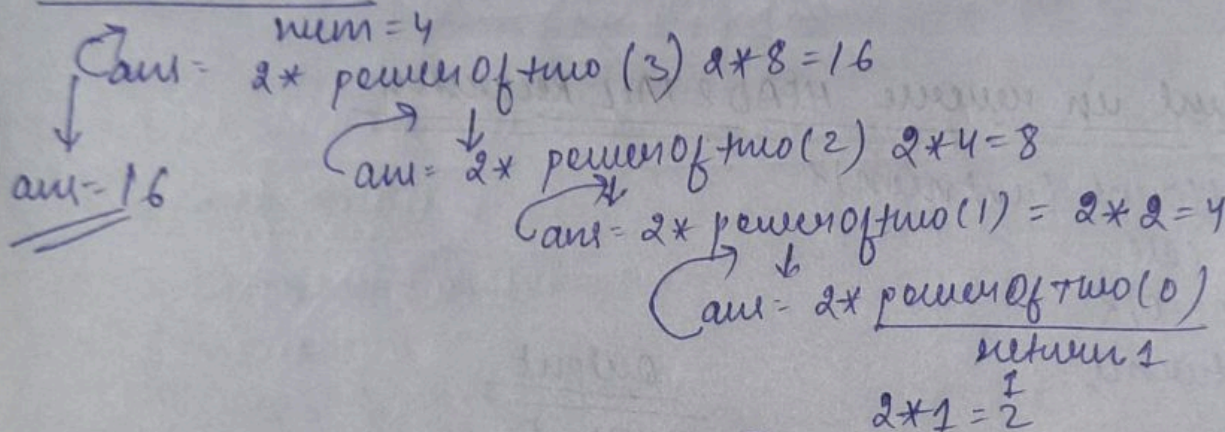 num = 4
ans = 2* powerOftwo (3) 2*8 = 16
ans = 16
ans = 2* powerOftwo(2) 2*4 = 8
ans = 2* powerOftwo(1) = 2*2 = 4
ans = 2* powerOftwo(0)
return 1
1
2*1 = 2